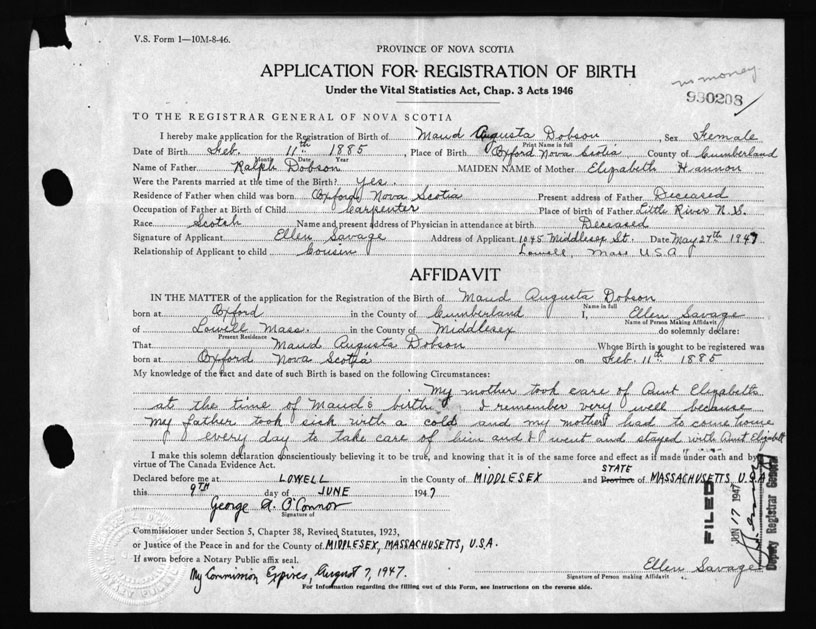 V.S. Form 1—10M-8-46.
PROVINCE OF NOVA SCOTIA
APPLICATION FOR REGISTRATION OF BIRTH
Under the Vital Statistics Act, Chap. 3 Acts 1946
no money
930208
TO THE REGISTRAR GENERAL OF NOVA SCOTIA
I hereby make application for the Registration of Birth of Maud Augusta Dobson, Sex Female
Print Name in full
Date of Birth Feb. 11th 1885, Place of Birth Oxford Nova Scotia County of Cumberland
Month Date Year
Name of Father Ralph Dobson MAIDEN NAME of Mother Elizabeth Hannon
Were the Parents married at the time of Birth? yes.
Residence of Father when child was born Oxford Nova Scotia Present address of Father Deceased
Occupation of Father at Birth of Child Carpenter Place of birth of Father Little River N.S.
Race Scotch Name and present address of Physician in attendance at birth Deceased
Signature of Applicant Ellen Savage Address of Applicant 1045 Middlesex St. Date May 27th 1947
Relationship of Applicant to child Cousin Lowell, Mass U.S.A
AFFIDAVIT
IN THE MATTER of the application for the Registration of the Birth of Maud Augusta Dobson
Name in full
born at Oxford in the County of Cumberland I, Ellen Savage
Name of Person Making Affidavit
of Lowell Mass. in the County of Middlesex do solemnly declare:
Present Residence
That Maud Augusta Dobson Whose Birth is sought to be registered was
born at Oxford Nova Scotia on Feb. 11th 1885
My knowledge of the fact and date of such Birth is based on the following Circumstances:
My mother took care of Aunt Elizabeth
at the time of Maud's birth. I remember very well because
my father took sick with a cold and my mother had to come home
every day to take care of him and I went and stayed with Aunt Elizabeth
I make this solemn declaration conscientiously believing it to be true, and knowing that it is of the same force and effect as if made under oath and by
virtue of The Canada Evidence Act.
STATE
Declared before me at LOWELL in the County of MIDDLESEX and Province of MASSACHUSETTS, U.S.A.
this 9TH day of JUNE 1947
George A. O'Connor
Signature of
Commissioner under Section 5, Chapter 38, Revised Statutes, 1923,
or Justice of the Peace in and for the County of MIDDLESEX, MASSACHUSETTS, U.S.A.
If sworn before a Notary Public affix seal.
Ellen Savage
Signature of Person making Affidavit
My Commission Expires, August 7, 1947.
For Information regarding the filling out of this Form, see instructions on the reverse side.
FILED
JUN 17 1947
Deputy Registrar General
NOTARY PUBLIC